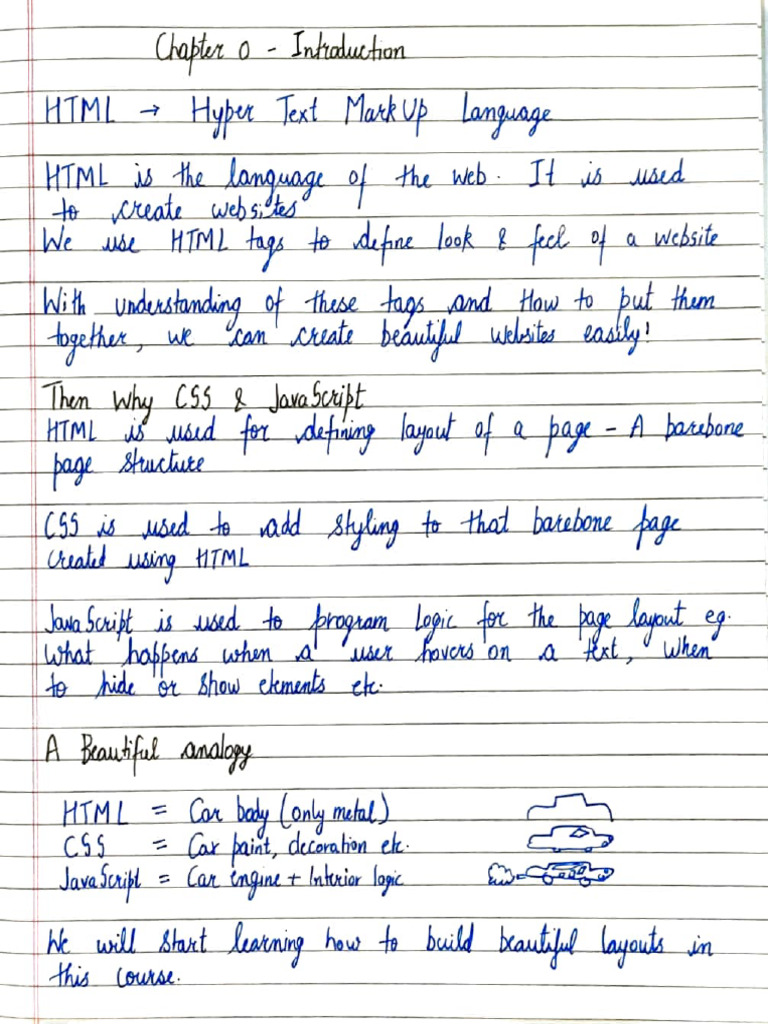 Chapter 0 - Introduction
HTML → Hyper Text MarkUp Language
HTML is the language of the web. It is used
to create websites
We use HTML tags to define look & feel of a website
With understanding of these tags and How to put them
together, we can create beautiful websites easily!
Then Why CSS & JavaScript
HTML is used for defining layout of a page - A barebone
page structure
CSS is used to add styling to that barebone page
created using HTML
JavaScript is used to program logic for the page layout eg.
What happens when a user hovers on a text, When
to hide or show elements etc.
A Beautiful analogy
HTML = Car body (only metal)
CSS = Car paint, decoration etc.
JavaScript = Car engine + Interior logic
We will start learning how to build beautiful layouts in
this course.